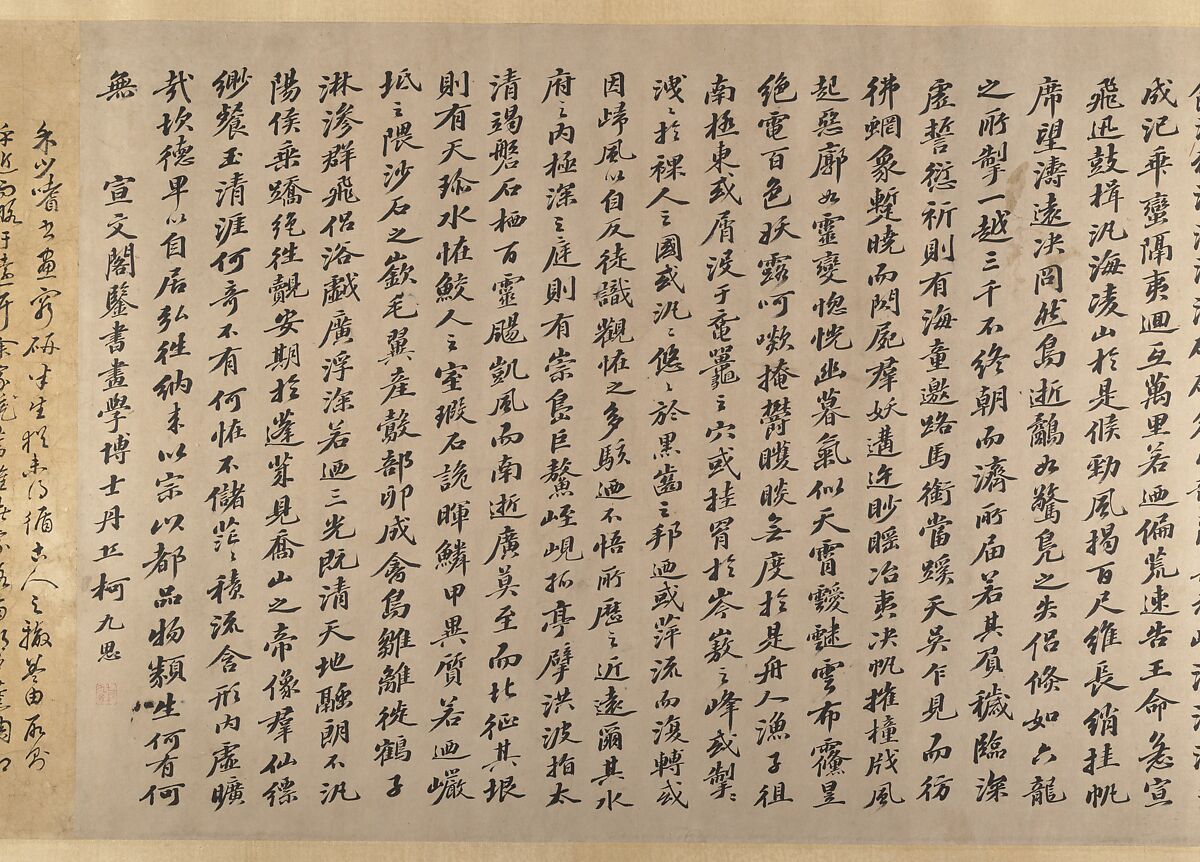 成汜乖蠻隔夷迴互萬里若迺偏荒速告王命急宣
飛迅鼓楫汎海凌山於是候勁風揭百尺維長綃挂帆
席望濤遠決冏然鳥逝鷸如驚鳧之失侶倏如六龍
之所掣一越三千不終朝而濟所屆若其負穢臨深
虛誓愆祈則有海童邀路馬銜當蹊天吳乍見而彷
彿蝄象暫曉而閃屍羣妖遘迕眇䁘冶夷決帆摧橦戕風
起惡廓如靈變惚恍幽暮氣似天霄靉靅雲布霵昱
絕電百色妖露呵㰲掩鬱矆睒無度於是舟人漁子徂
南極東或屑沒于黿鼉之穴或挂罥於岑嶅之峰或掣〻
洩〻於裸人之國或汎〻悠〻於黑齒之邦迺或萍流而轉或
因歸風以自反徒識觀恠之多駭迺不悟所歷之近遠爾其水
府之內極深之庭則有崇島巨鰲峌峴孤亭擘洪波指太
清竭磐石栖百靈颺凱風而南逝廣莫至而北征其垠
則有天琛水恠鮫人之室瑕石詭暉鱗甲異質若迺巖
坻之隈沙石之嶔毛翼產鷇剖卵成禽鳧雛離褷鶴子
淋滲群飛侶浴戲廣浮深若迺三光既清天地融朗不汎
陽侯乘蹻絕往覿安期於蓬萊見喬山之帝像羣仙縹
緲餐玉清涯何奇不有何恠不儲茫〻積流含形內虛曠
哉坎德卑以自居弘往納來以宗以都品物類生何有何
無 宣文閣鑒書畫學博士丹丘柯九思
少嗜書畫窮研半生猶未得循古人之轍蓋由所